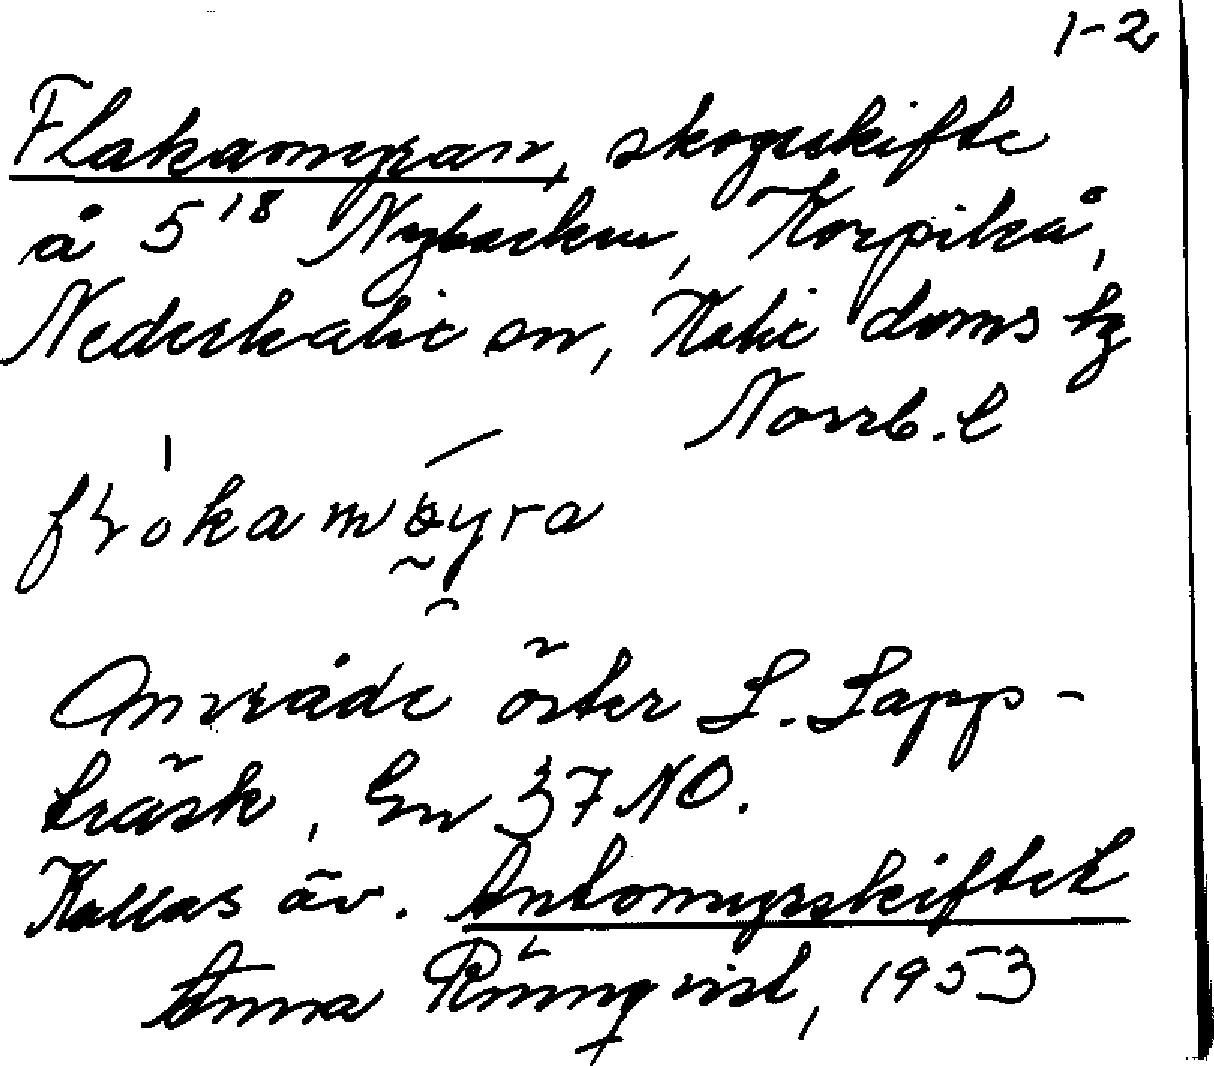 1-2
Flakamyran, skogsskifte
å 5¹⁸ Nybacken, Korpikå,
Nederkalix sn, Kalix doms. hg
Norrb. l
Område öster L. Lapp-
träsk, En 37 NO.
Kallas äv. Antomyrskiftet
Anna Rönnqvist, 1953